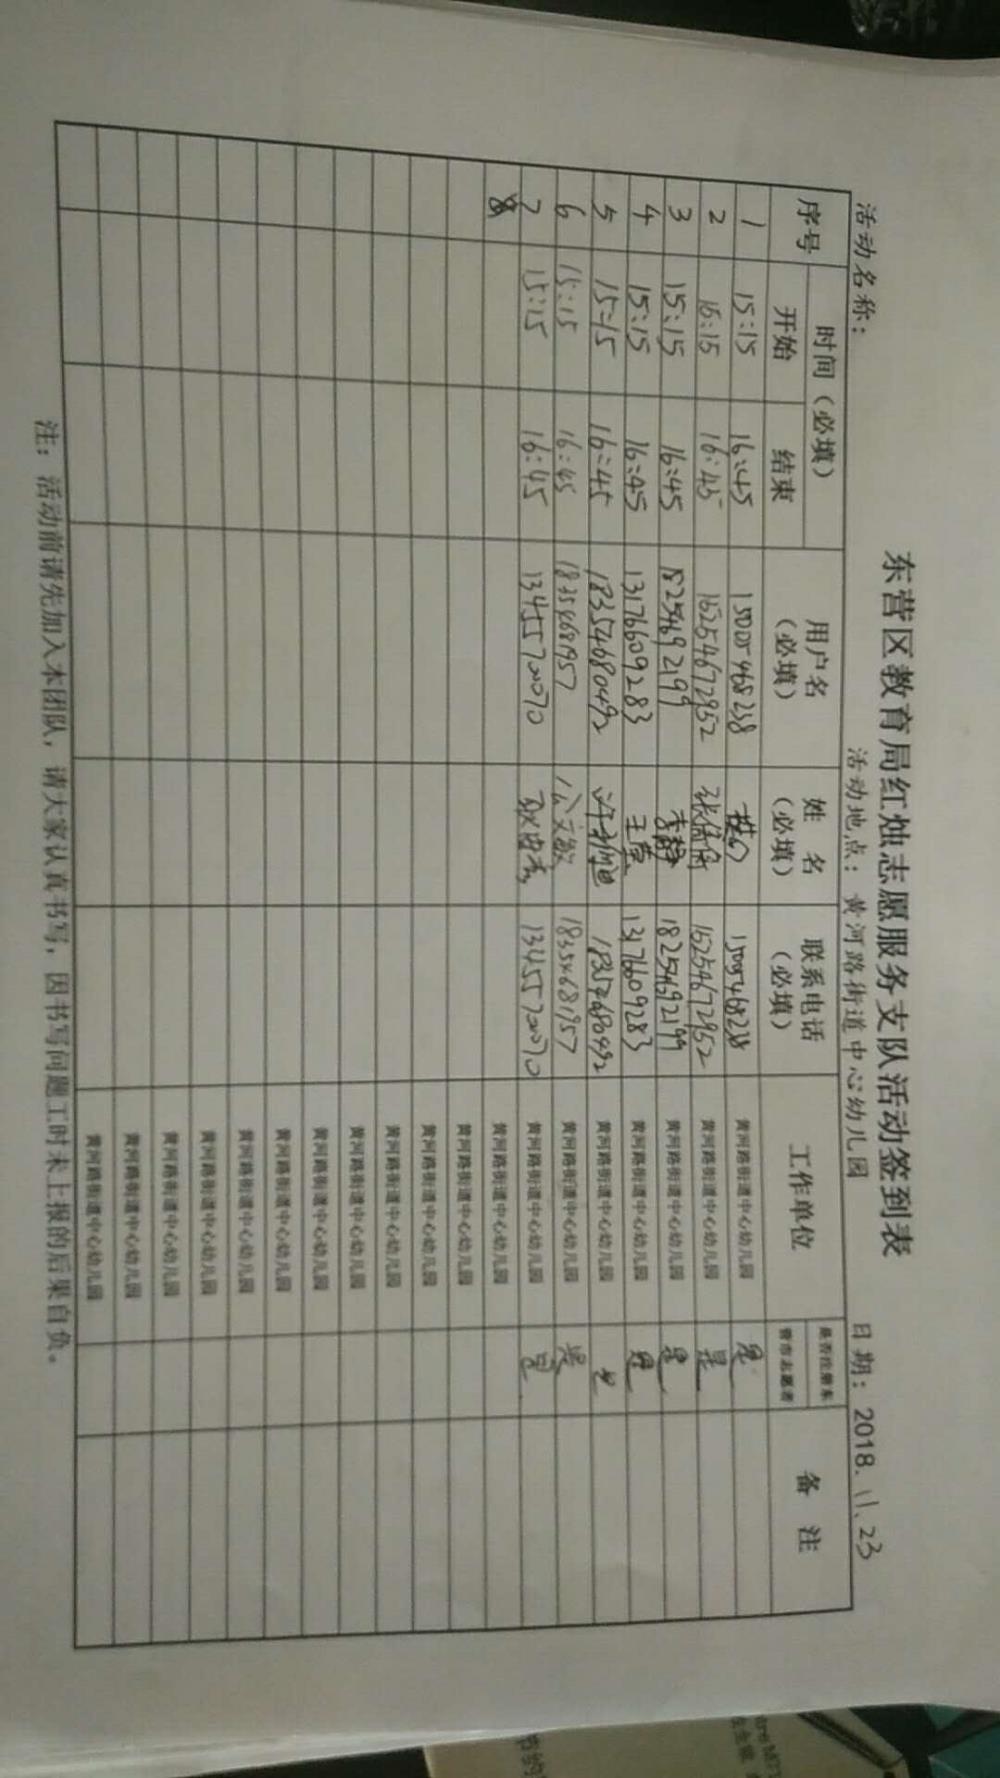 东营区教育局红烛志愿服务支队活动签到表
活动名称： 活动地点：黄河路街道中心幼儿园 日期：2018.11.23
序号 时间（必填） 用户名（必填） 姓名（必填） 联系电话（必填） 工作单位 是否注册东营市志愿者 备注
开始 结束
1 15:15 16:45 15005468238 15005468238 黄河路街道中心幼儿园 是
2 15:15 16:45 15254672952 15254672952 黄河路街道中心幼儿园 是
3 15:15 16:45 18254692199 李静 18254692199 黄河路街道中心幼儿园 是
4 15:15 16:45 13176609283 王莹 13176609283 黄河路街道中心幼儿园 是
5 15:15 16:45 18354680492 18354680492 黄河路街道中心幼儿园 是
6 15:15 16:45 18354681957 公文敏 18354681957 黄河路街道中心幼儿园 是
7 15:15 16:45 13455720070 13455720070 黄河路街道中心幼儿园 是
8 黄河路街道中心幼儿园
黄河路街道中心幼儿园
黄河路街道中心幼儿园
黄河路街道中心幼儿园
黄河路街道中心幼儿园
黄河路街道中心幼儿园
黄河路街道中心幼儿园
黄河路街道中心幼儿园
黄河路街道中心幼儿园
黄河路街道中心幼儿园
黄河路街道中心幼儿园
黄河路街道中心幼儿园
注：活动前请先加入本团队，请大家认真书写，因书写问题工时未上报的后果自负。